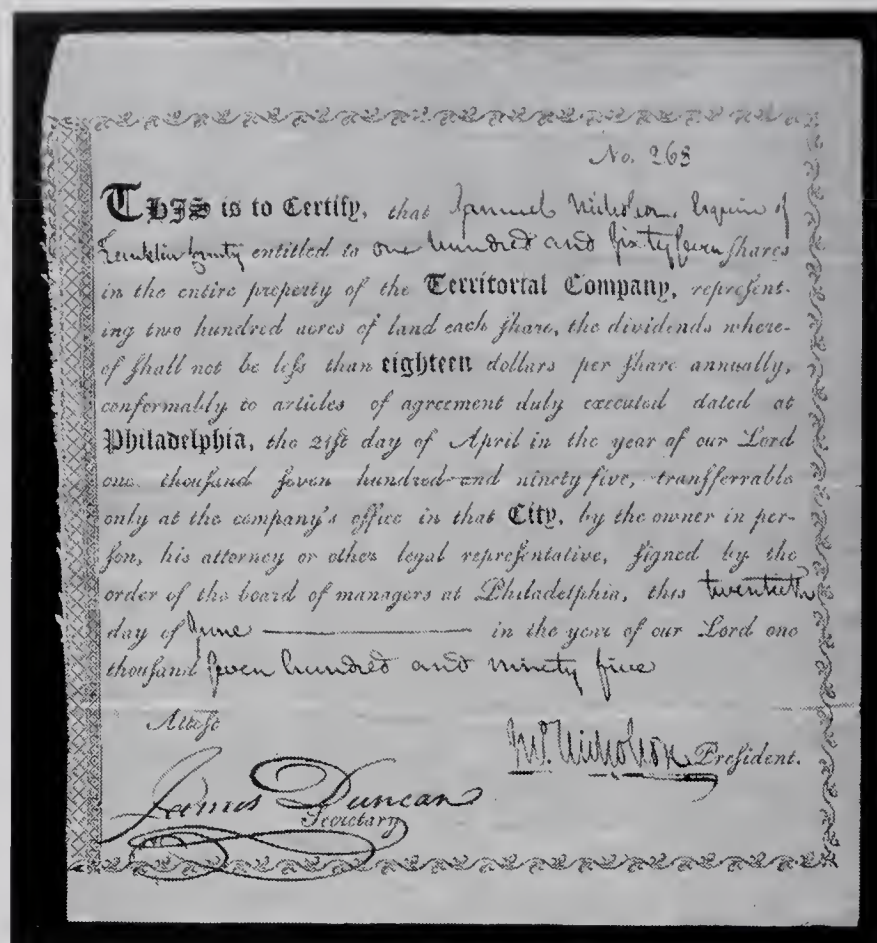 No. 268
THIS is to Certify, that Samuel Nicholson, Esquire of
Franklin County entitled to one hundred and sixty seven shares
in the entire property of the Territorial Company, represent-
ing two hundred acres of land each share, the dividends where-
of shall not be less than eighteen dollars per share annually,
conformably to articles of agreement duly executed dated at
Philadelphia, the 21st day of April in the year of our Lord
one thousand seven hundred and ninety five, transferrable
only at the company's office in that City, by the owner in per-
son, his attorney or other legal representative, signed by the
order of the board of managers at Philadelphia, this twentieth
day of June in the year of our Lord one
thousand seven hundred and ninety five
Attest
Jno. Nicholson President.
James Duncan
Secretary